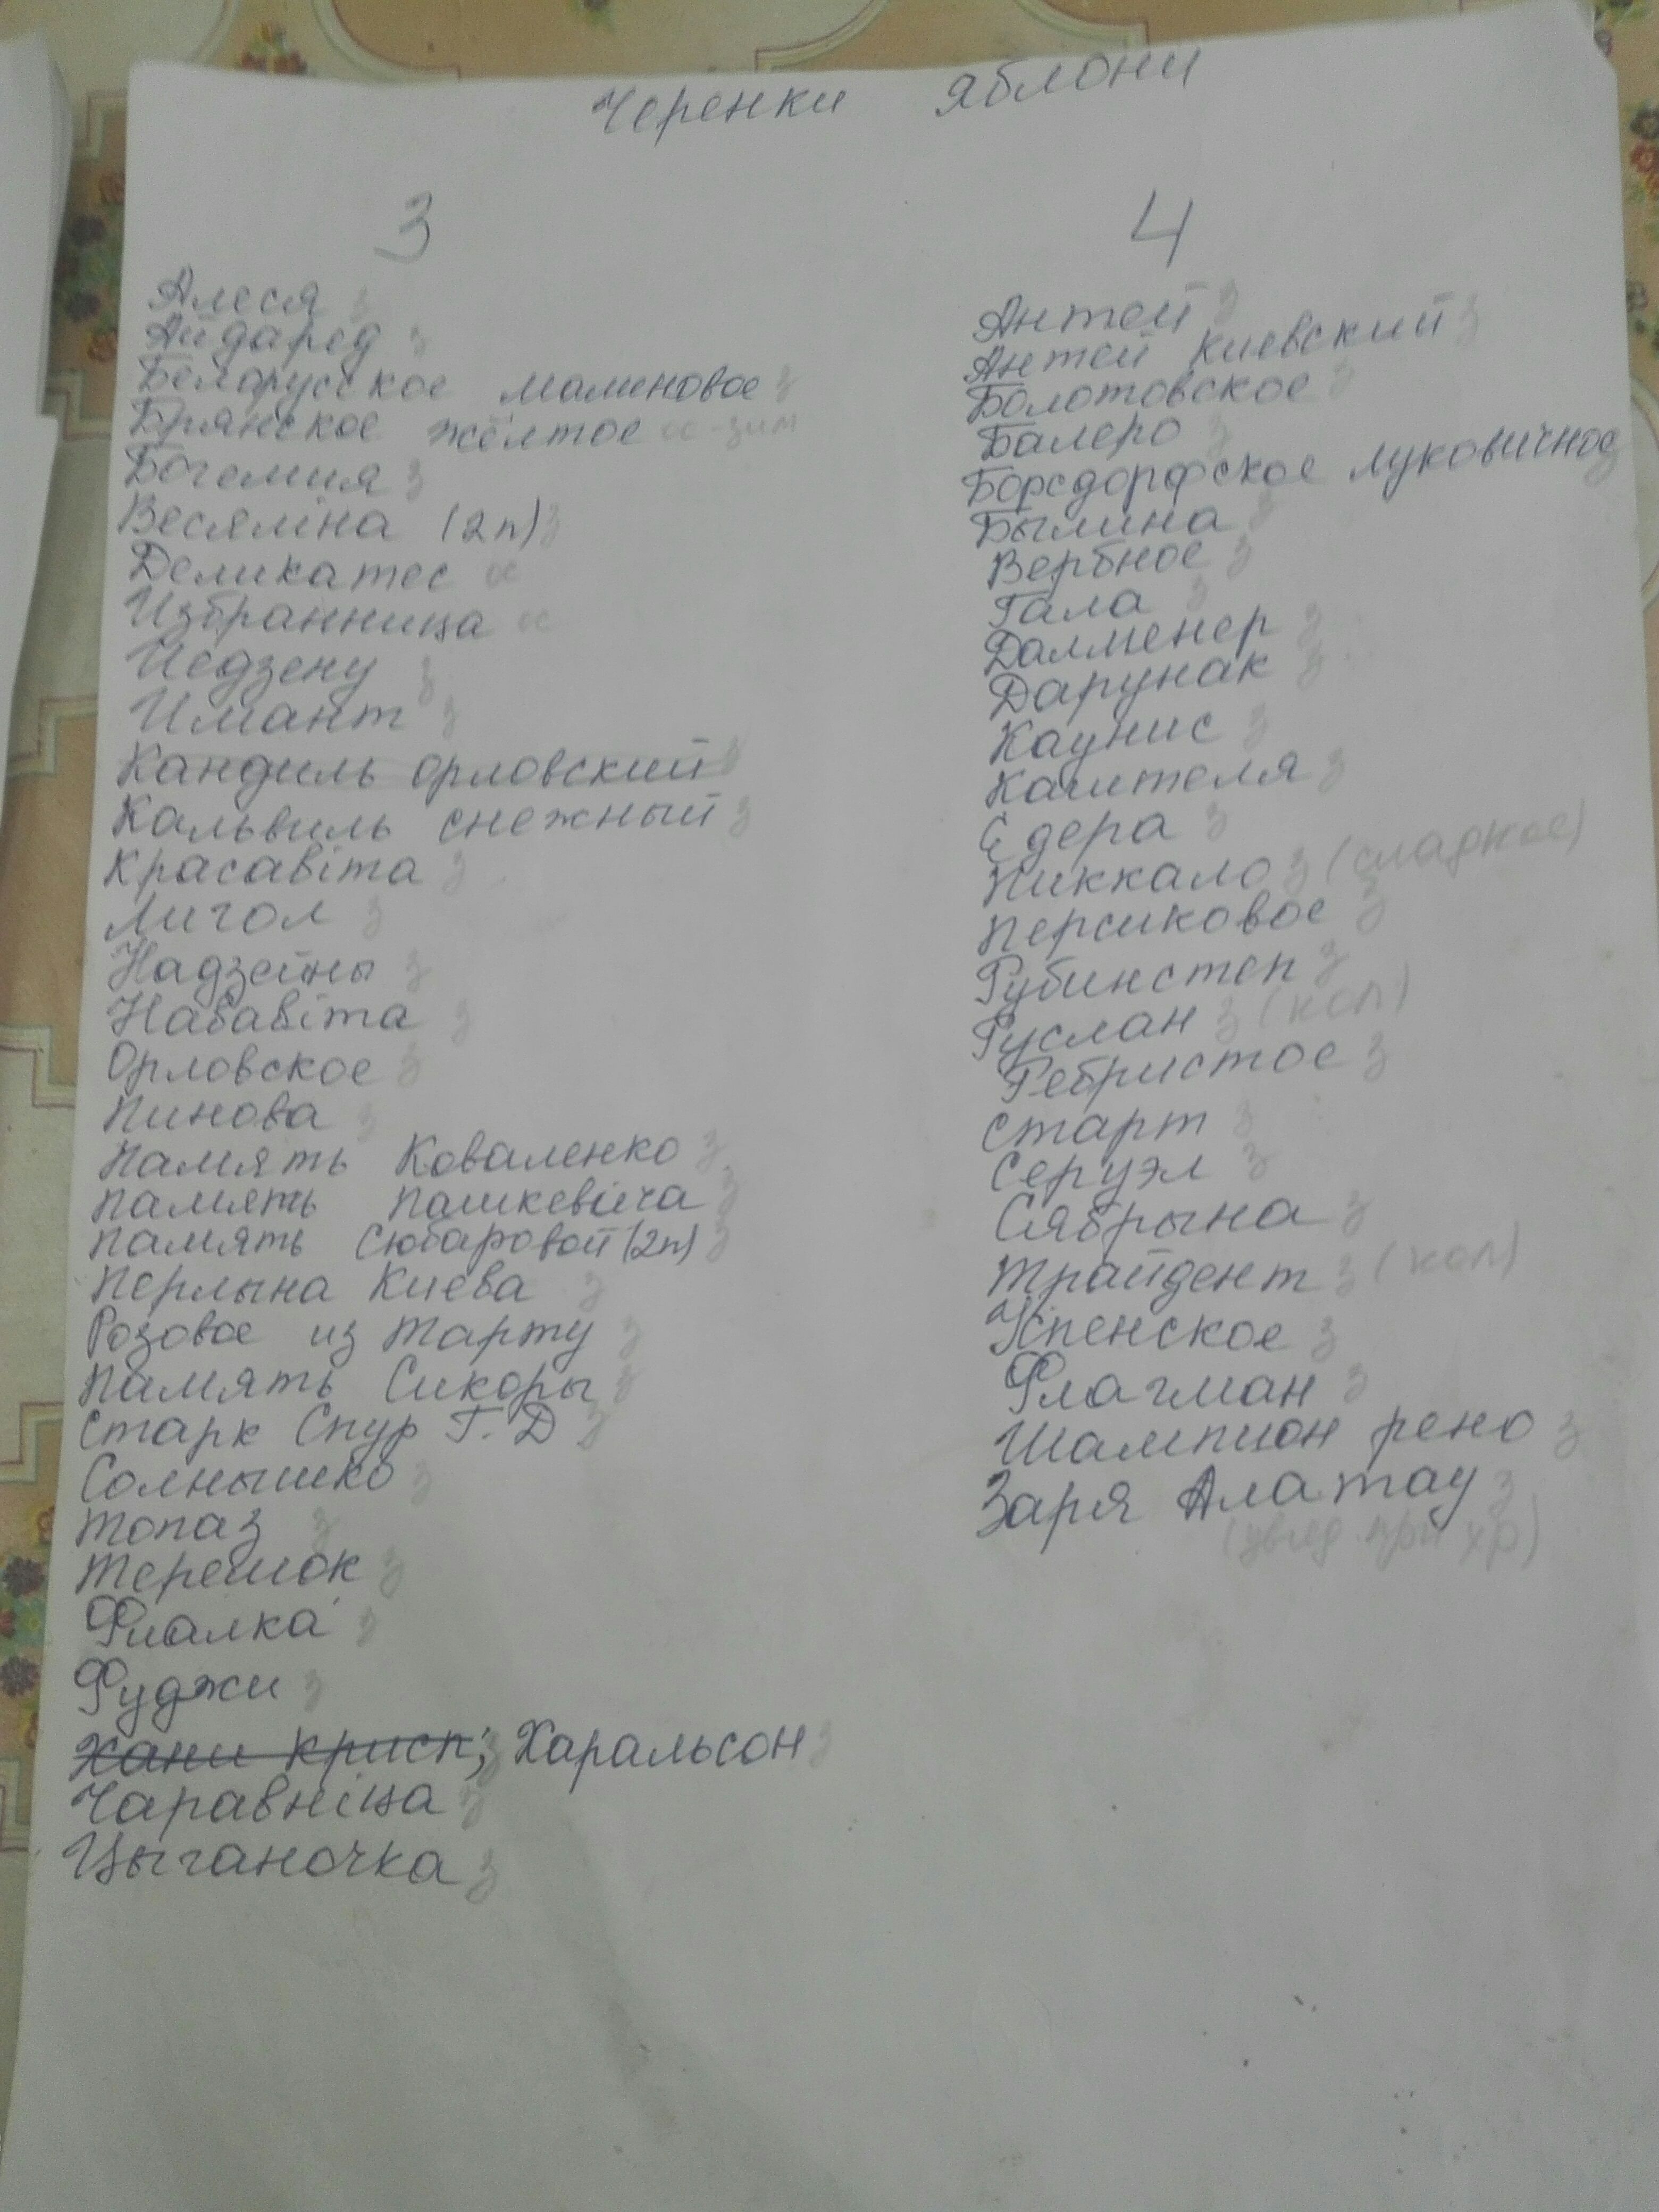 Черенки яблони
3
Алеся з
Айдаред з
Белорусское малиновое з
Брянское жёлтое ос-зим
Богемия з
Весяліна (2п) з
Деликатес ос
Избранница ос
Иедзену з
Имант з
Кандиль орловский з
Кальвиль снежный з
Красавіта з
Лигол з
Надзейны з
Набавіта з
Орловское з
Пинова з
Память Коваленко з
Память Пашкевіча з
Память Сюбаровой (2п) з
Перлына Киева з
Розовое из Тарту з
Память Сикоры з
Старк Спур Г.Д з
Солнышко з
Топаз з
Терешок з
Фиалка з
Фуджи з
Хани крисп; з Харальсон з
Чаравніца з
Цыганочка з
4
Антей з
Антей киевский з
Болотовское з
Балеро з
Борсдорфское луковичное
Былина з
Вербное з
Гала з
Далменер з
Дарунак з
Каунис з
Каштеля з
Єдера з
Пиккало з (сладкое)
Персиковое з
Рубинстеп з
Руслан з (кол)
Ребристое з
Старт з
Серуэл з
Сябрына з
Трайдент з (кол)
Успенское з
Флагман з
Шампион рено з
Заря Алатау з
при хр)